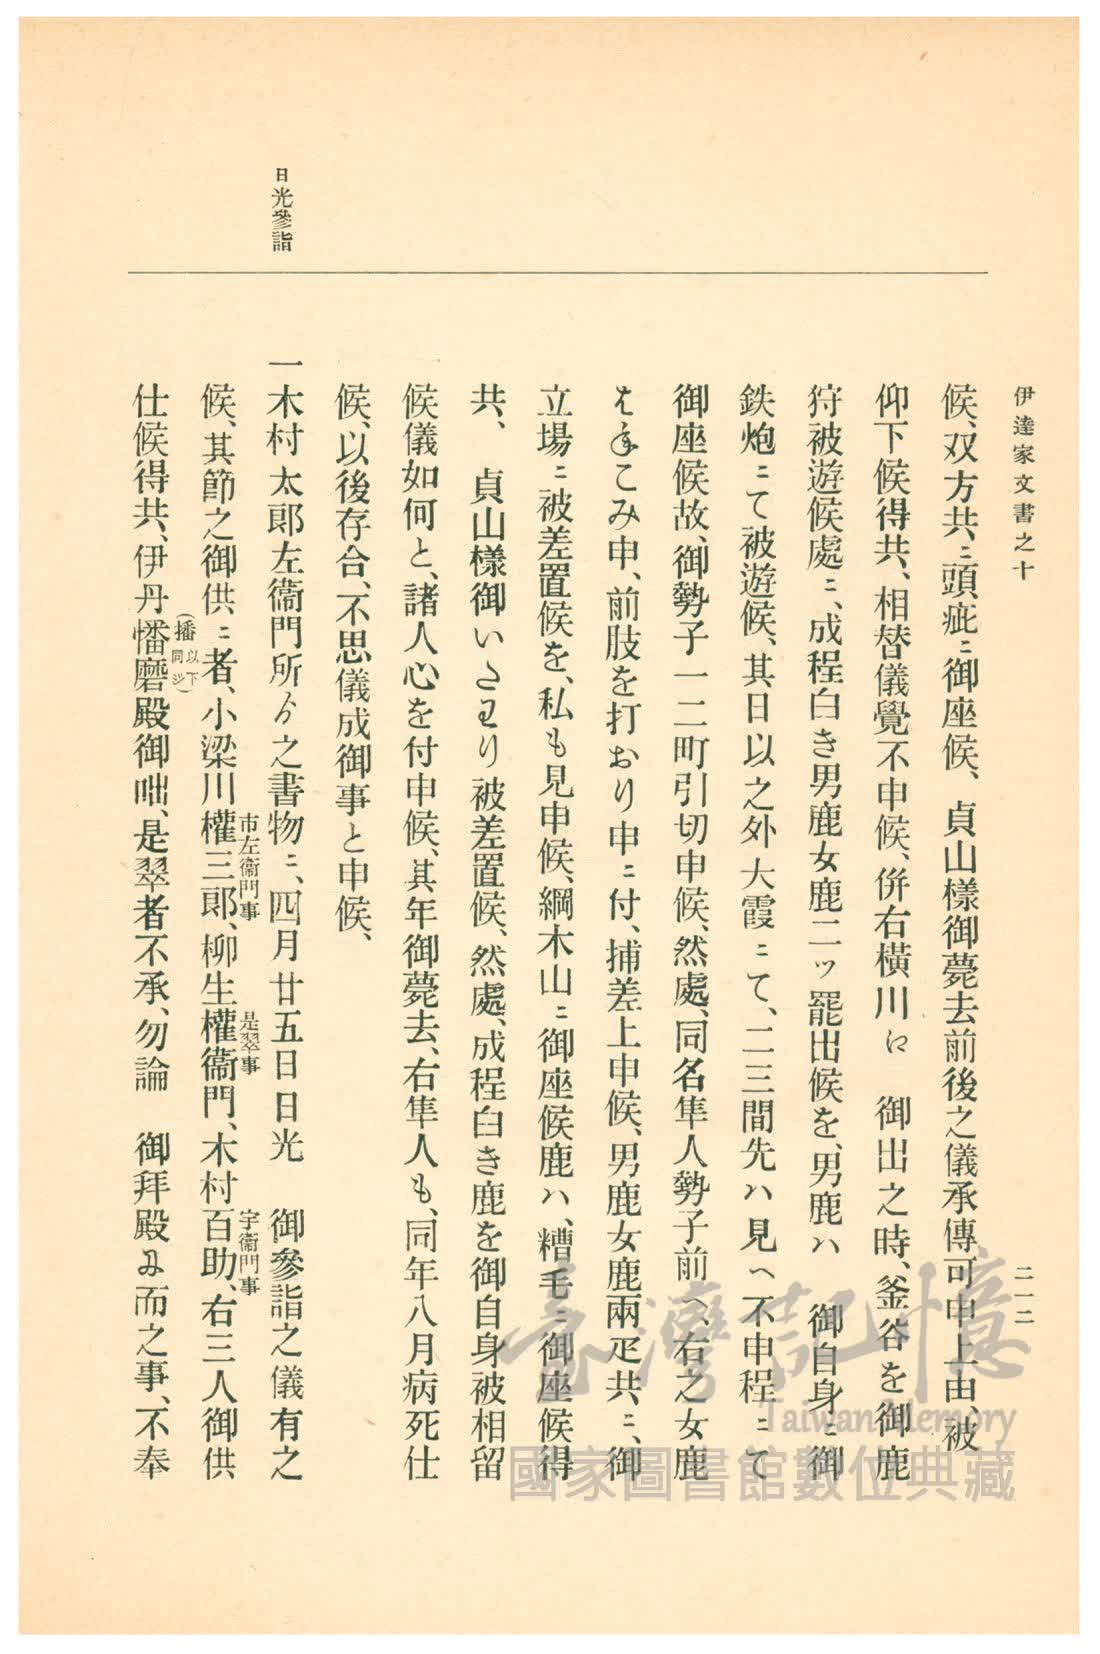 伊達家文書之十
二一二
日光參詣
候、双方共ニ頭疵ニ御座候、　貞山樣御薨去前後之儀承傳可申上由、被
仰下候得共、相替儀覺不申候、併右橫川江　御出之時、釜谷を御鹿
狩被遊候處ニ、成程白き男鹿女鹿二ッ罷出候を、男鹿ハ　御自身ニ御
鉄炮ニて被遊候、其日以之外大霞ニて、二三間先ハ見へ不申程ニて
御座候故、御勢子一二町引切申候、然處、同名隼人勢子前へ、右之女鹿
こみ申、前肢を打おり申ニ付、捕差上申候、男鹿女鹿兩疋共ニ、御
立場ニ被差置候を、私も見申候、綱木山ニ御座候鹿ハ、糟毛ニ御座候得
共、　貞山樣御いたわり被差置候、然處、成程白き鹿を御自身被相留
候儀如何と、諸人心を付申候、其年御薨去、右隼人も、同年八月病死仕
候、以後存合、不思儀成御事と申候、
一木村太郎左衞門所ゟ之書物ニ、四月廿五日日光　御參詣之儀有之
候、其節之御供ニ者、小梁川權三郎、柳生權衞門、木村百助、右三人御供
市左衞門事
是翠事
宇衞門事
仕候得共、伊丹憣磨殿御咄、是翠者不承、勿論　御拜殿ゟ而之事、不奉
(播以下同ジ)
臺灣記憶
Taiwan Memory
國家圖書館數位典藏